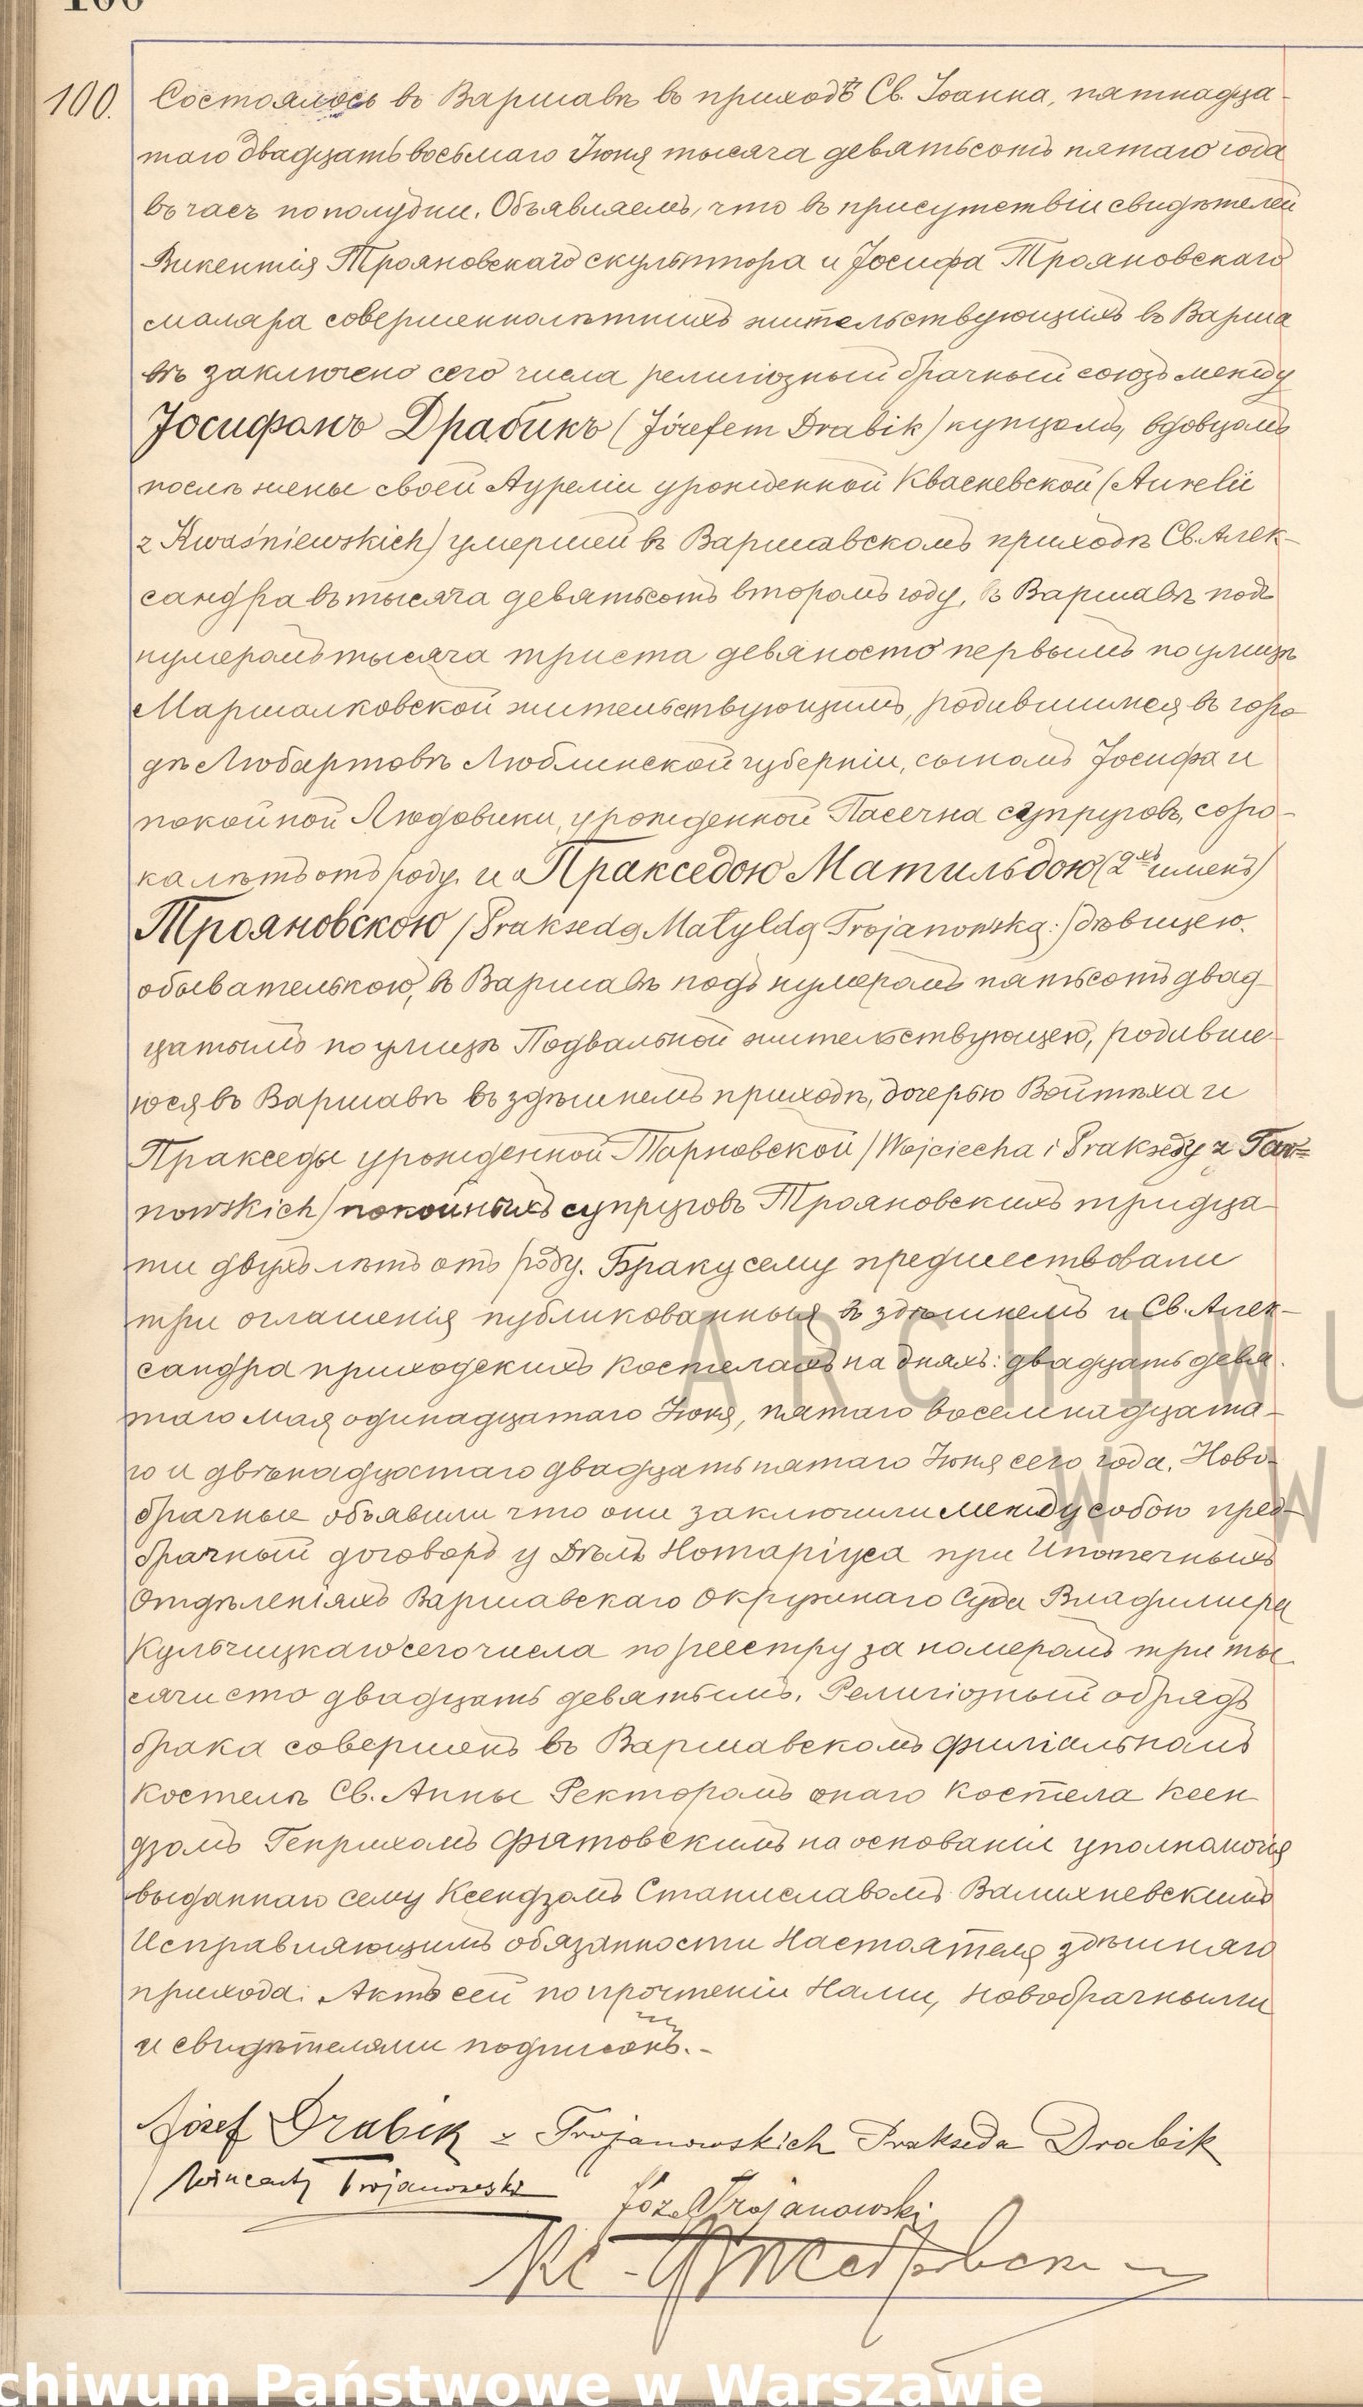 100
100. Состоялось въ Варшавѣ въ приходѣ Св. Іоанна, пятнадца-
таго двадцать восьмаго Іюня тысяча девятьсотъ пятаго года
въ часъ пополудни. Объявляемъ, что въ присутствіи свидѣтелей
Викентія Трояновскаго скульптора и Іосифа Трояновскаго
маляра совершеннолѣтнихъ жительствующихъ въ Варша
вѣ заключено сего числа религіозный брачный союзъ между
Іосифомъ Драбикъ (Józefem Drabik) купцомъ, вдовцомъ
послѣ жены своей Ауреліи урожденной Квасневской (Aurelii
z Kwaśniewskich) умершей въ Варшавскомъ приходѣ Св. Алек-
сандра въ тысяча девятьсотъ второмъ году, въ Варшавѣ подъ
нумеромъ тысяча триста девяносто первымъ по улицѣ
Маршалковской жительствующимъ, родившимся въ горо
дѣ Любартовѣ Люблинской губерніи, сыномъ Іосифа и
покойной Людовики, урожденной Пасечна супруговъ, соро-
ка лѣтъ отъ роду. и Пракседою Матильдою (2хъ именъ)
Трояновскою (Praksedą Matyldą Trojanowską:) дѣвицею.
обывателькою, въ Варшавѣ подъ нумеромъ пятьсотъ двад-
цатымъ по улицѣ Подвальной жительствующею, родивше-
юся въ Варшавѣ въ здѣшнемъ приходѣ, дочерью Войтѣха и
Пракседы урожденной Тарновской (Wojciecha i Praksedy z Tar=
nowskich) покойныхъ супруговъ Трояновскихъ тридца
ти двухъ лѣтъ отъ роду. Браку сему предшествовали
три оглашенія публикованныя въ здѣшнемъ и Св. Алек-
сандра приходскихъ костелахъ на дняхъ: двадцать девя
таго мая одинадцатаго Іюня, пятаго восемнадцата-
го и двѣнадцатаго двадцать пятаго Іюня сего года. Ново-
брачные объявили что они заключили между собою пред-
брачный договоръ у Дѣлъ Нотаріуса при Ипотечныхъ
Отдѣленіяхъ Варшавскаго Окружнаго Суда Владиміра
Кульчицкаго сего числа по реестру за номеромъ три ты
сячи сто двадцать девятымъ. Религіозный обрядъ
брака совершенъ въ Варшавскомъ филіальномъ
Костелѣ Св. Анны Ректоромъ онаго Костела Ксен
дзомъ Генрихомъ Фіатовскимъ на основаніи уполномочія
выданнаго сему Ксендзомъ Станиславомъ
Исправляющимъ обязанности Настоятеля здѣшняго
прихода: Актъ сей по прочтеніи Нами, новобрачными
и свидѣтелями подписанъ.-
Józef Drabik z Trojanowskich Prakseda Drabik
Wincenty Trojanowski Józef Trojanowski
ARCHIWU
W W
chiwum Państwowe w Warszawie